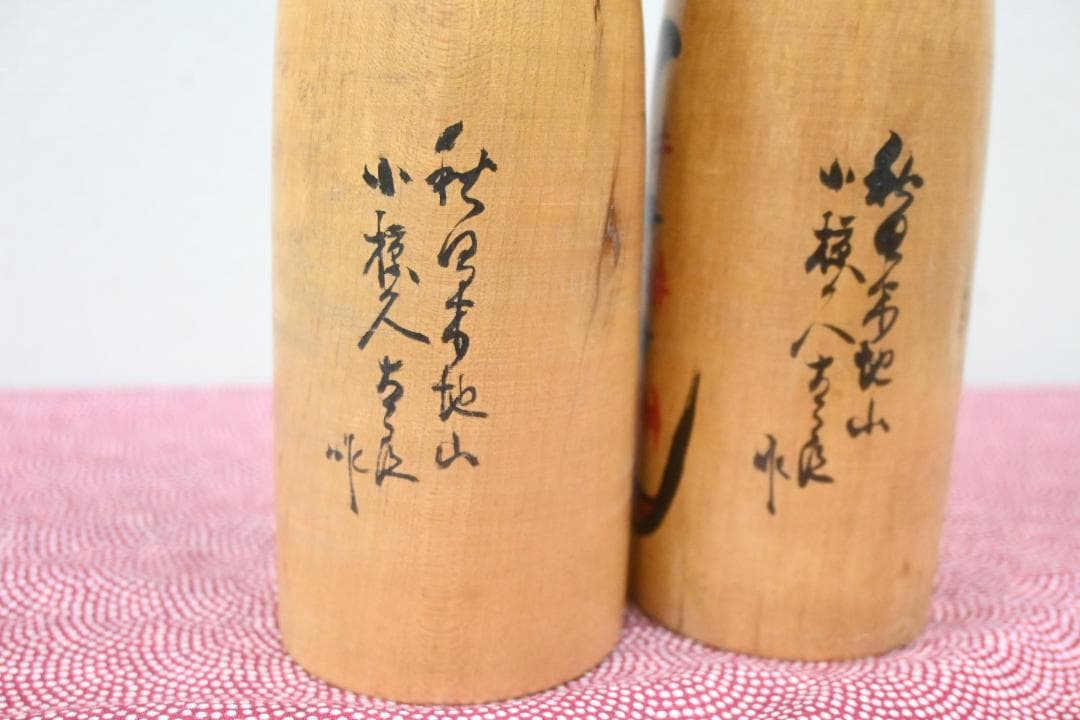 秋田木地山
小椋久太郎
作
秋田木地山
小椋久太郎
作